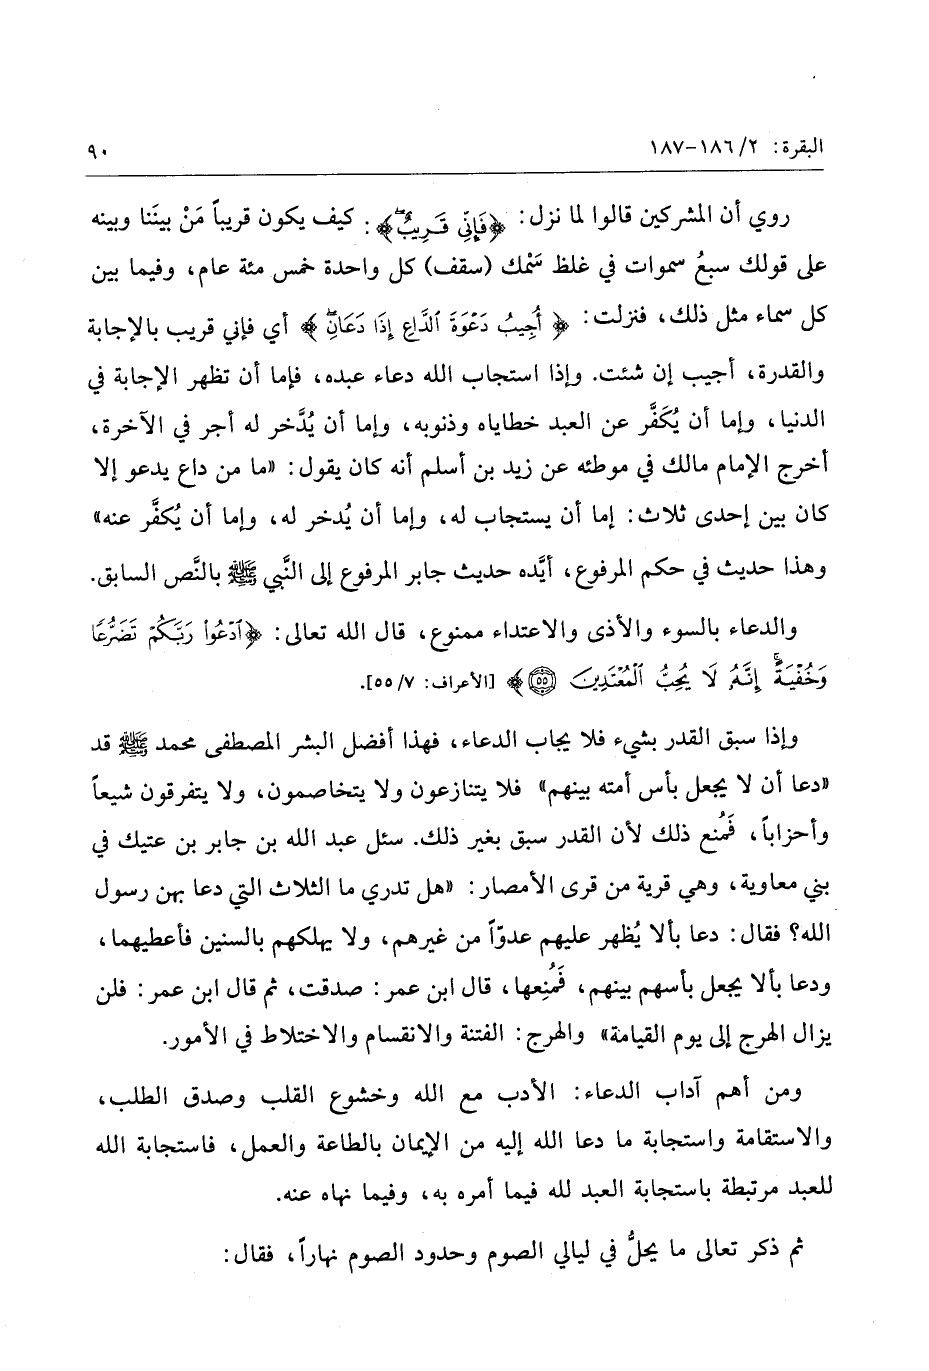 البقرة: ٢/ ١٨٦-١٨٧
٩٠
روي أن المشركين قالوا لما نزل: ﴿فَإِنِّي قَرِيبٌ﴾: كيف يكون قريباً مَنْ بينَنا وبينه
على قولك سبعُ سموات في غلظ سَمْك (سقف) كل واحدة خمس مئة عام، وفيما بين
كل سماء مثل ذلك، فنزلت: ﴿أُجِيبُ دَعْوَةَ ٱلدَّاعِ إِذَا دَعَانِ﴾ أي فإني قريب بالإجابة
والقدرة، أجيب إن شئت. وإذا استجاب الله دعاء عبده، فإما أن تظهر الإجابة في
الدنيا، وإما أن يُكَفَّر عن العبد خطاياه وذنوبه، وإما أن يُدَّخر له أجر في الآخرة،
أخرج الإمام مالك في موطئه عن زيد بن أسلم أنه كان يقول: «ما من داع يدعو إلا
كان بين إحدى ثلاث: إما أن يستجاب له، وإما أن يُدخر له، وإما أن يُكفَّر عنه»
وهذا حديث في حكم المرفوع، أيَّده حديث جابر المرفوع إلى النَّبي ﷺ بالنَّص السابق.
والدعاء بالسوء والأذى والاعتداء ممنوع، قال الله تعالى: ﴿ٱدْعُوا۟ رَبَّكُمْ تَضَرُّعًا
وَخُفْيَةً ۚ إِنَّهُۥ لَا يُحِبُّ ٱلْمُعْتَدِينَ ۝٥٥﴾ [الأعراف: ٧/ ٥٥].
وإذا سبق القدر بشيء فلا يجاب الدعاء، فهذا أفضل البشر المصطفى محمد ﷺ قد
«دعا أن لا يجعل بأس أمته بينهم» فلا يتنازعون ولا يتخاصمون، ولا يتفرقون شيعاً
وأحزاباً، فَمُنع ذلك لأن القدر سبق بغير ذلك. سئل عبد الله بن جابر بن عتيك في
بني معاوية، وهي قرية من قرى الأمصار: «هل تدري ما الثلاث التي دعا بهن رسول
الله؟ فقال: دعا بألا يُظهر عليهم عدوّاً من غيرهم، ولا يهلكهم بالسنين فأعطيهما،
ودعا بألا يجعل بأسهم بينهم، فَمُنِعها، قال ابن عمر: صدقت، ثم قال ابن عمر: فلن
يزال الهرج إلى يوم القيامة» والهرج: الفتنة والانقسام والاختلاط في الأمور.
ومن أهم آداب الدعاء: الأدب مع الله وخشوع القلب وصدق الطلب،
والاستقامة واستجابة ما دعا الله إليه من الإيمان بالطاعة والعمل، فاستجابة الله
للعبد مرتبطة باستجابة العبد لله فيما أمره به، وفيما نهاه عنه.
ثم ذكر تعالى ما يحلُّ في ليالي الصوم وحدود الصوم نهاراً، فقال: